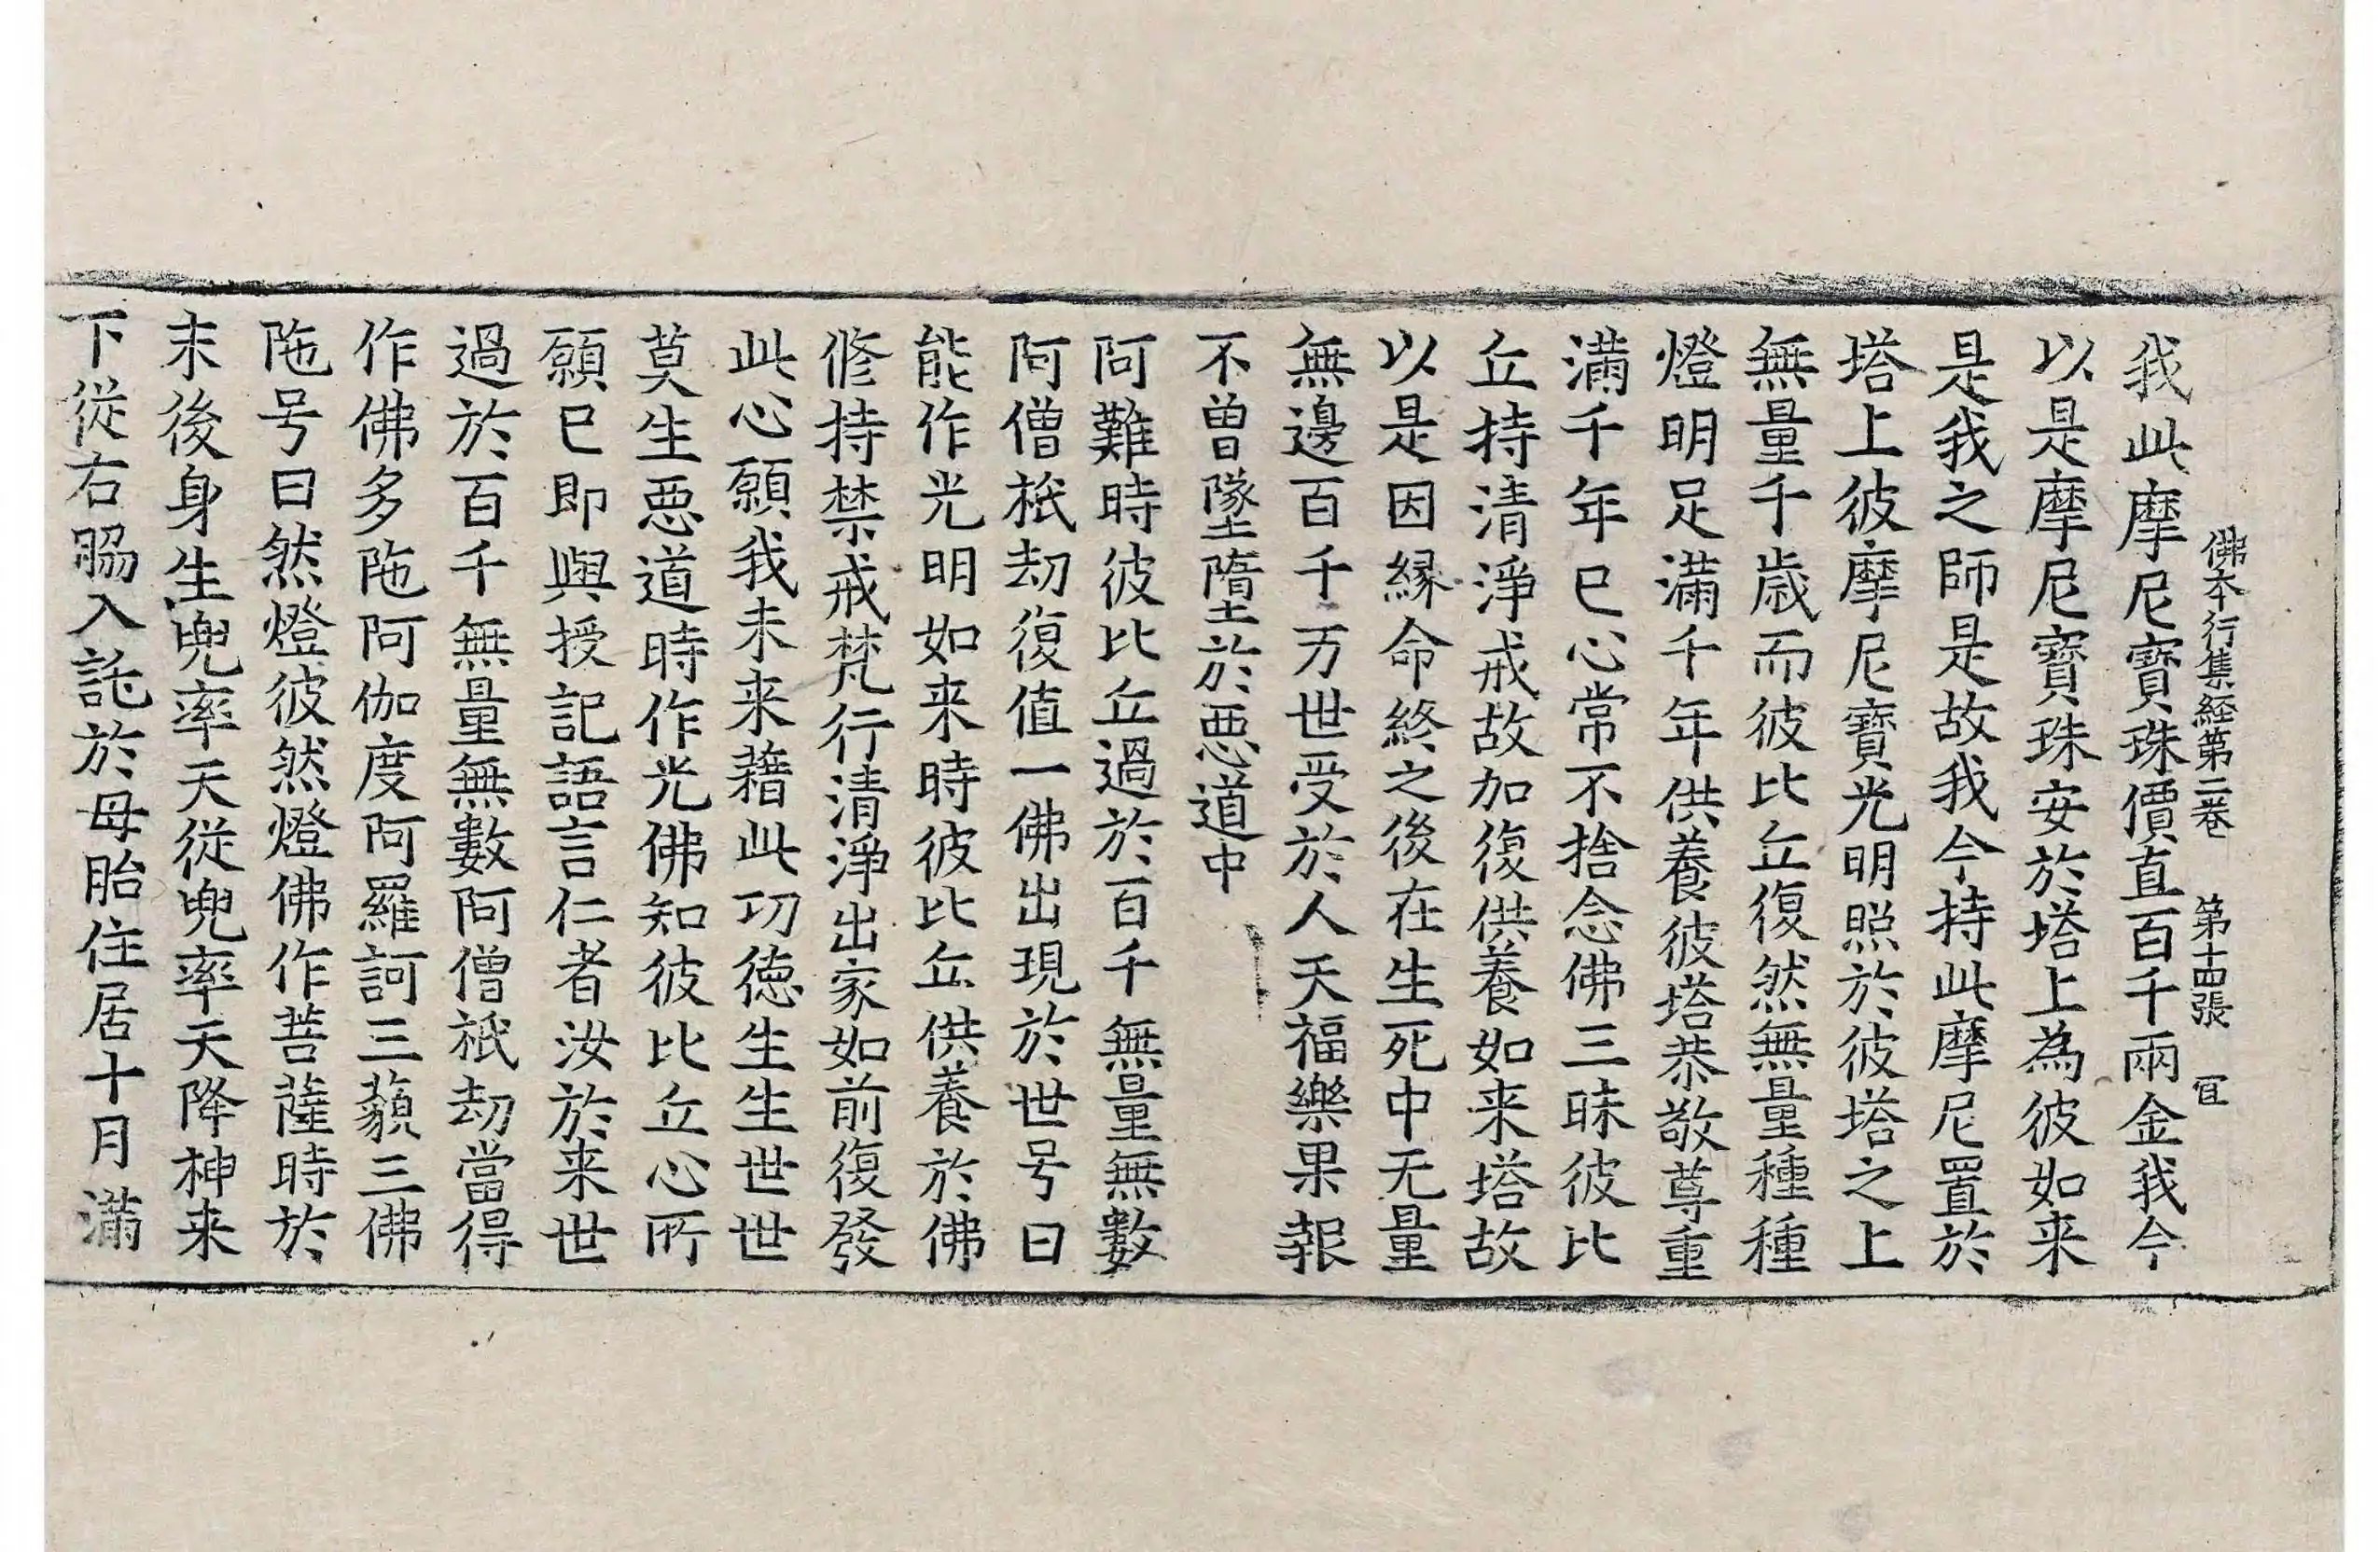 我此摩尼寶珠價直百千兩金我今
佛本行集経第二卷　第十四張　冝
以是摩尼寶珠安於塔上為彼如来
是我之師是故我今持此摩尼置於
塔上彼摩尼寶光明照於彼塔之上
無量千歳而彼比丘復然無量種種
燈明足滿千年供養彼塔恭敬尊重
滿千年已心常不捨念佛三昧彼比
丘持清淨戒故加復供養如来塔故
以是因縁命終之後在生死中无量
無邊百千万世受於人天福樂果報
不曽墜墮於惡道中
阿難時彼比丘過於百千無量無數
阿僧祇劫復值一佛出現於世号曰
能作光明如来時彼比丘供養於佛
修持禁戒梵行清淨出家如前復發
此心願我未来藉此功徳生生世世
莫生惡道時作光佛知彼比丘心所
願已即與授記語言仁者汝於来世
過於百千無量無數阿僧祇劫當得
作佛多陁阿伽度阿羅訶三藐三佛
陁号曰然燈彼然燈佛作菩薩時於
末後身生兜率天從兜率天降神来
下從右脇入託於母胎住居十月滿